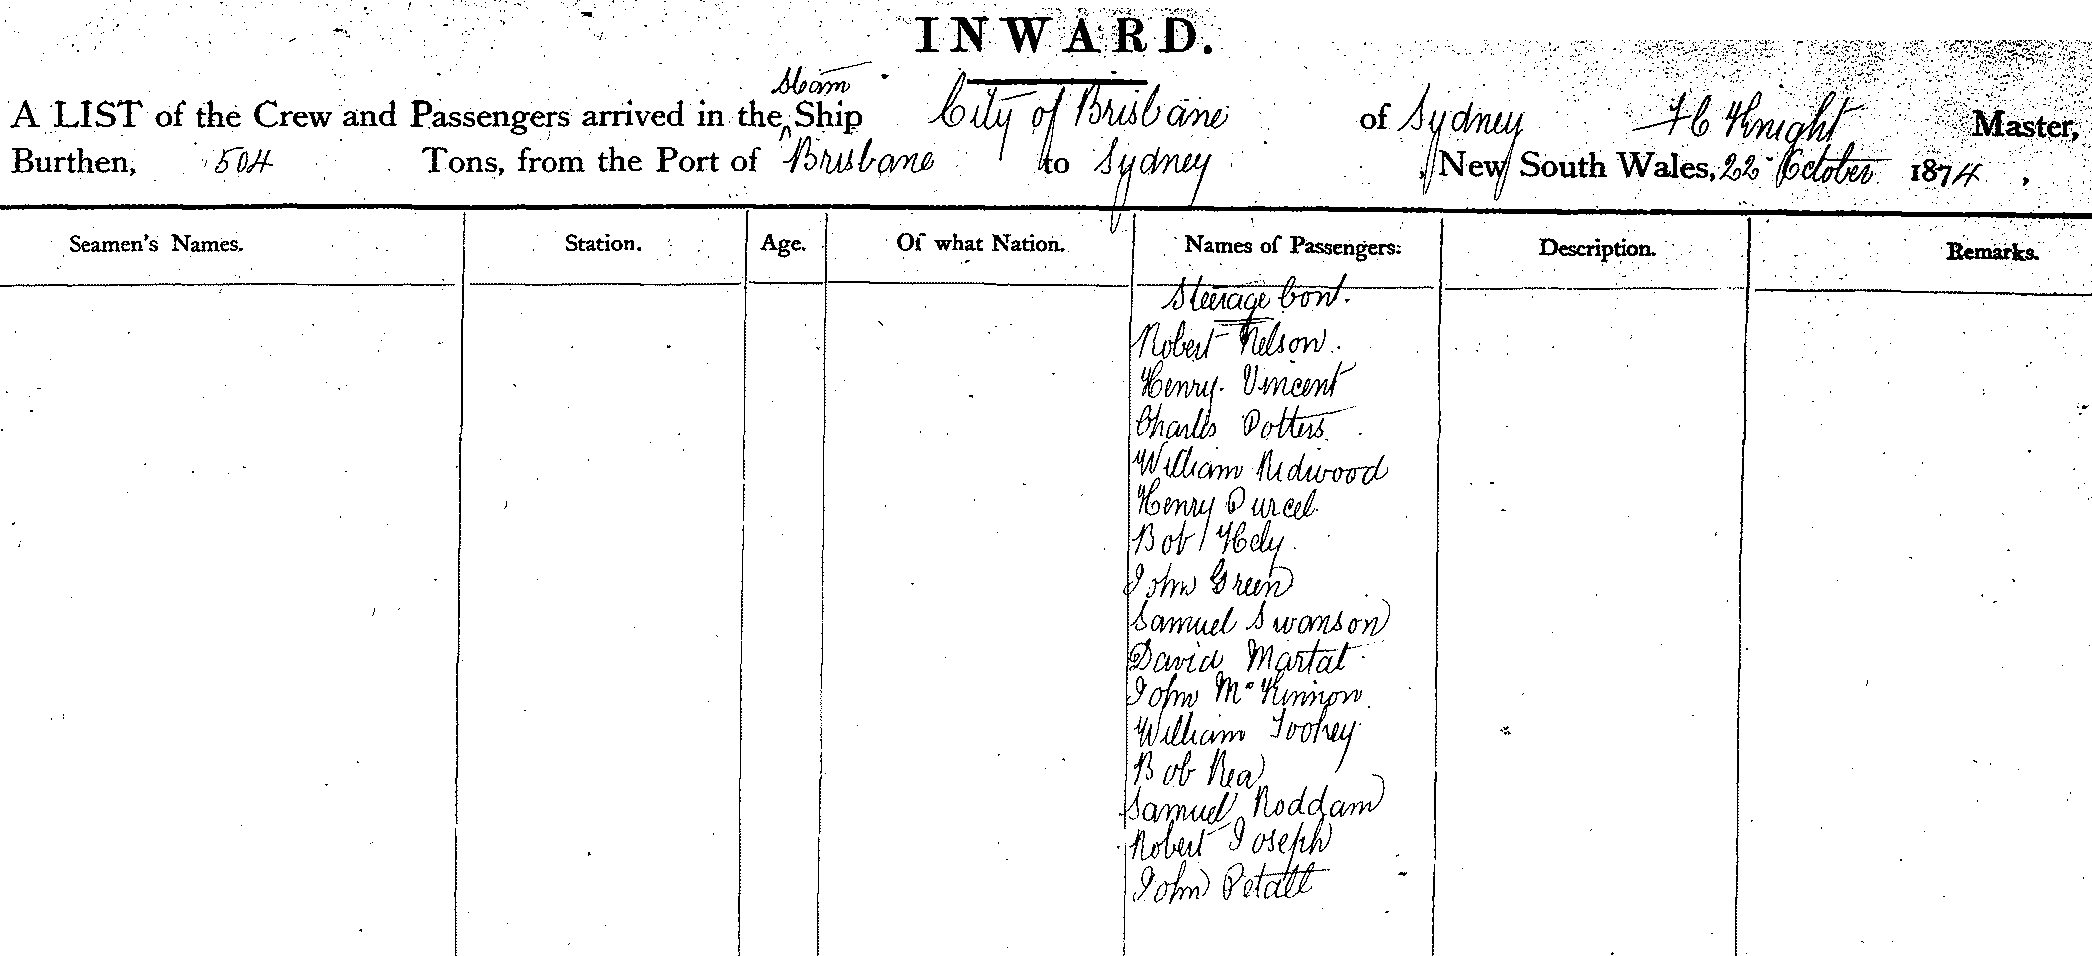 INWARD.
A LIST of the Crew and Passengers arrived in the ^ Steam Ship City of Brisbane of Sydney F C Knight Master,
Burthen, 504 Tons, from the Port of Brisbane to Sydney, New South Wales, 22 October 1874,
Seamen's Names. Station. Age. Of what Nation. Names of Passengers. Description. Remarks.
Steerage Cont.
Robert Nelson
Henry Vincent
Charles Potters
William Redwood
Henry Purcel
Bob Hely
John Green
Samuel Swanson
David Martat
John Mc Kinnon
William Toohey
Bob Rea
Samuel Roddam
Robert Joseph
John